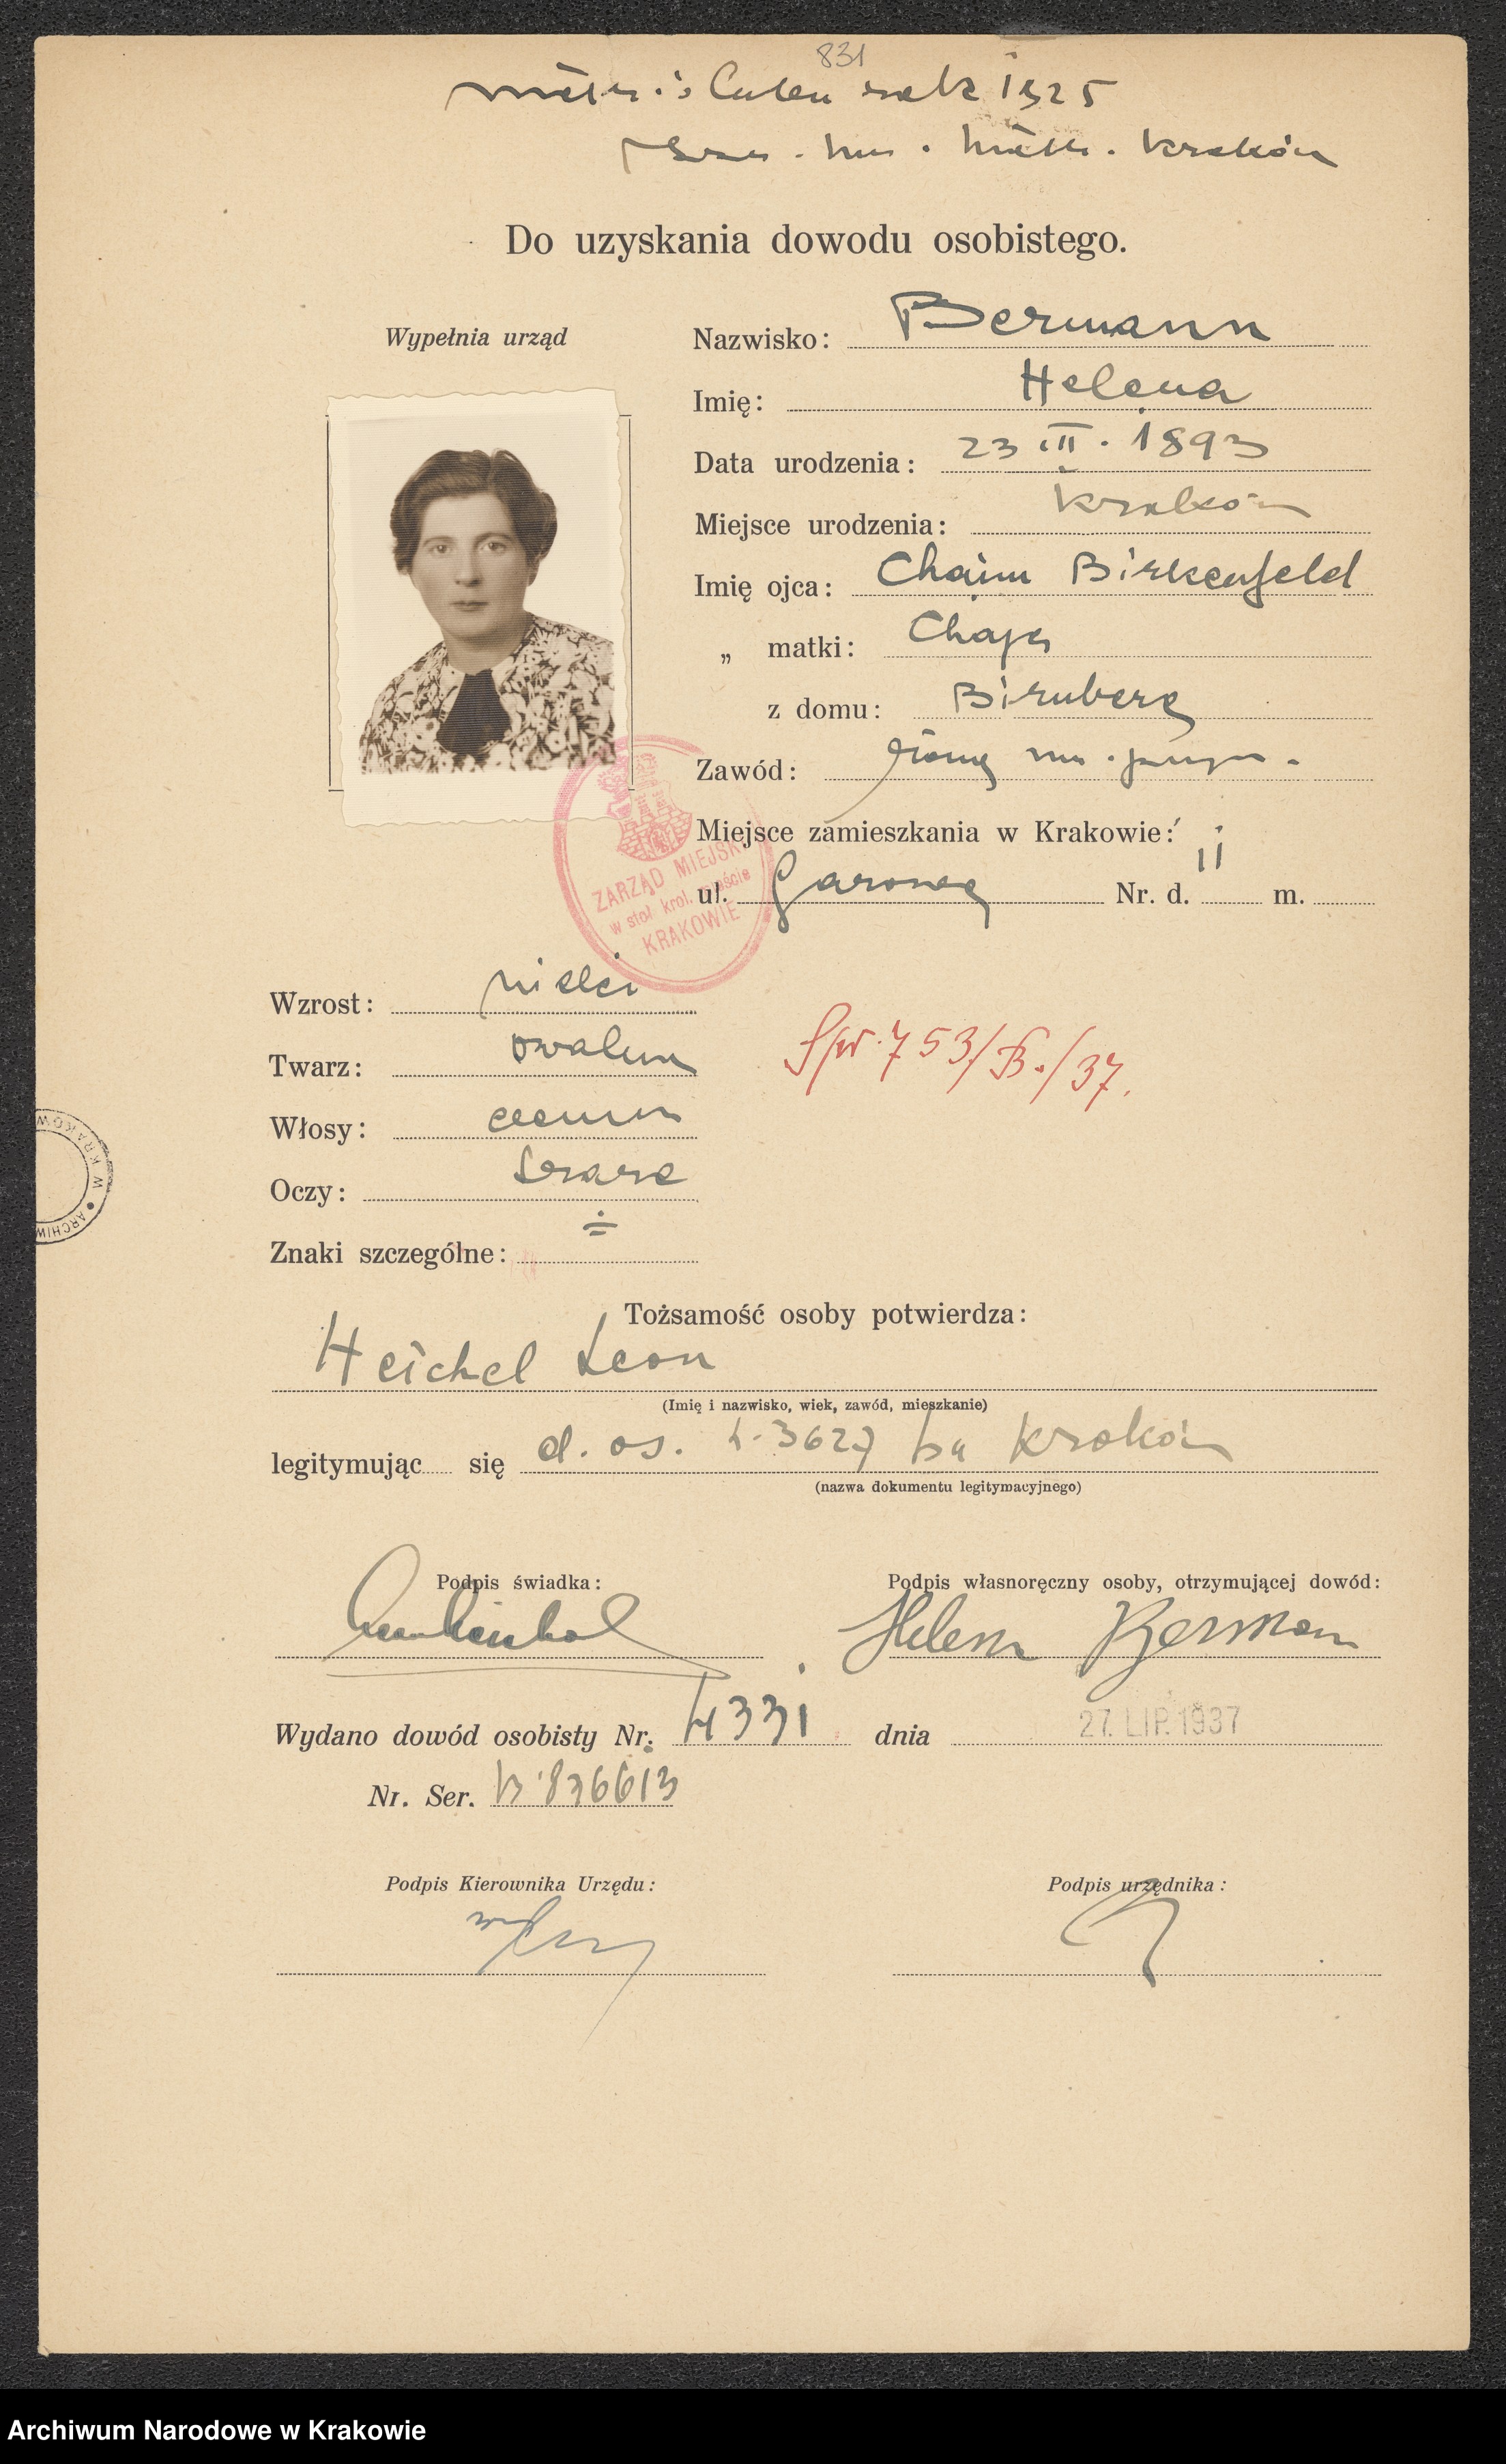 831
rok 1925
Kraków
Do uzyskania dowodu osobistego.
Wypełnia urząd
Nazwisko: Bermann
Imię: Helena
Data urodzenia: 23 III. 1893
Miejsce urodzenia: Kraków
Imię ojca: Chaim Birkenfeld
„ matki: Chaja
z domu: Birnberg
Zawód:
Miejsce zamieszkania w Krakowie:
ul. Gazowa Nr. d. 11 m.
ZARZĄD MIEJSKI
w stoł. król. mieście
KRAKOWIE
Wzrost: niski
Twarz: owalna
Włosy: ciemne
Oczy: szare
Spr. 753/B./37.
W KRAKOW
W • ARCHIW
Znaki szczególne: ÷
Tożsamość osoby potwierdza:
Heichel Leon
(Imię i nazwisko, wiek, zawód, mieszkanie)
legitymując się d. os. Kraków
(nazwa dokumentu legitymacyjnego)
Podpis świadka:
Podpis własnoręczny osoby, otrzymującej dowód:
Helena Berman
Wydano dowód osobisty Nr. 4331 dnia 27. LIP. 1937
Nr. Ser. 836613
Podpis Kierownika Urzędu:
Podpis urzędnika:
Archiwum Narodowe w Krakowie